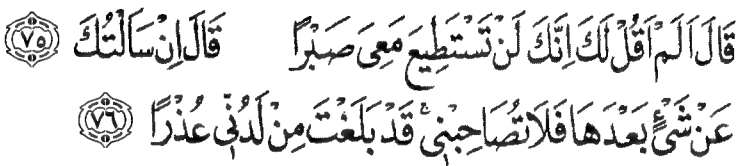 قَالَ اَلَمْ اَقُلْ لَكَ اِنَّكَ لَنْ تَسْتَطِيعَ مَعِىَ صَبْرًا ﴿٧٥﴾ قَالَ اِنْ سَاَلْتُكَ
عَنْ شَىْءٍ بَعْدَهَا فَلَا تُصَاحِبْنٖى ۚ قَدْ بَلَغْتَ مِنْ لَدُنّٖى عُذْرًا ﴿٧٦﴾